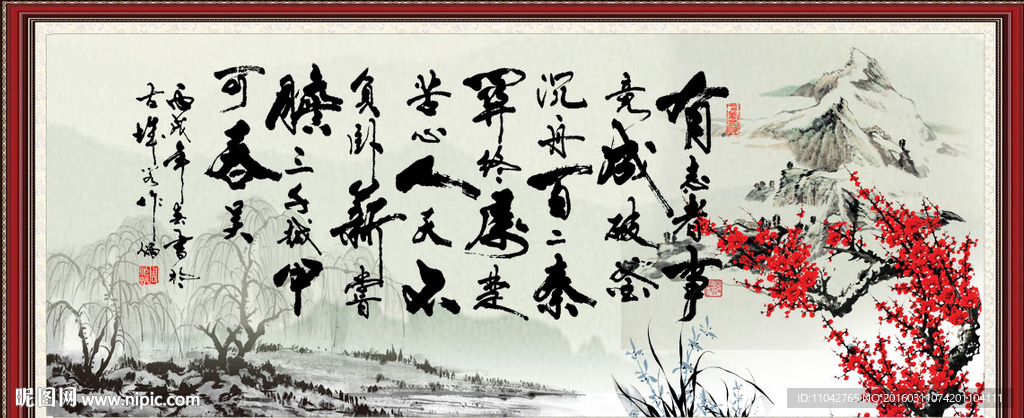 有志者事
竟成破釜
沉舟百二秦
關终属楚
苦心人天不
負卧薪嘗
膽三千越甲
可吞吴
丙戌年書於
昵图网 www.nipic.com
ID:11042765 NO:20160311074201104111